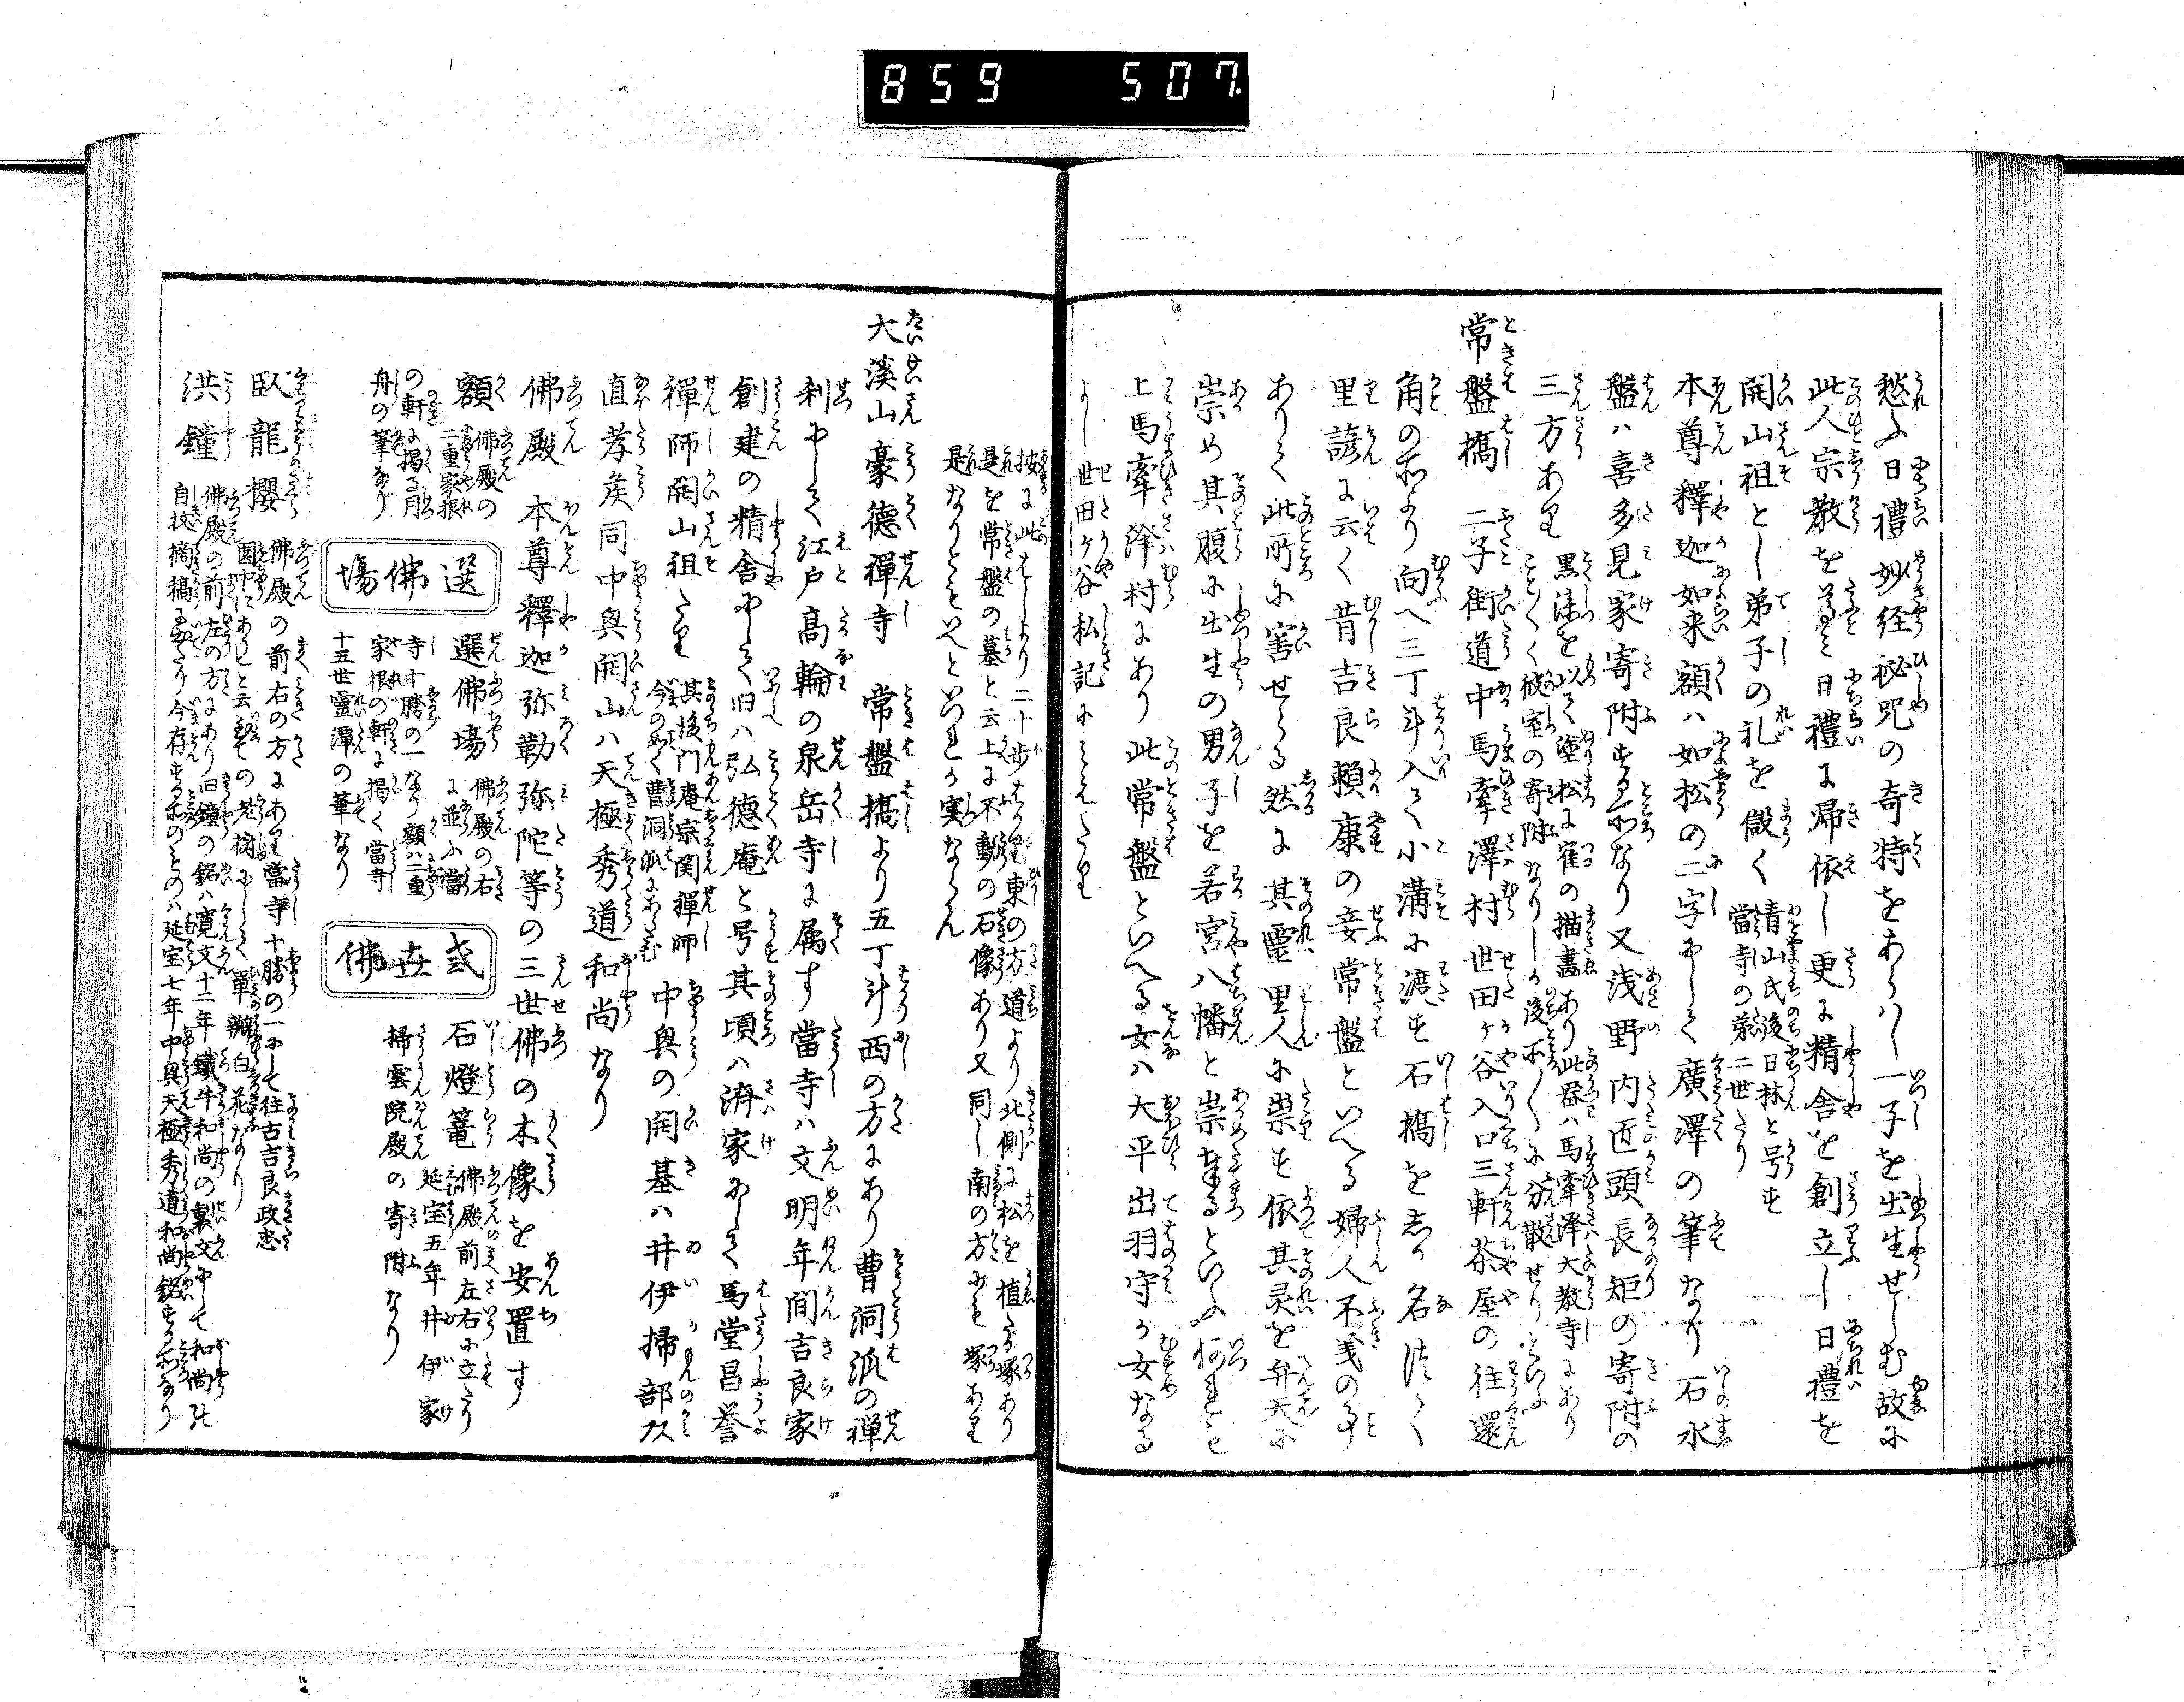 859 507.
愁ふ日禮妙経祕咒の奇特をあらハし一子を出生せしむ故に
此人宗教を尊ミ日禮に帰依し更に精舎を創立し日禮を
開山祖とし弟子の礼を儼く
青山氏後日林と号す
當寺の第二世たり
本尊釋迦如来額ハ如松の二字にして廣澤の筆なり石水
盤ハ喜多見家寄附する所なり又浅野内匠頭長矩の寄附の
三方あり
黒漆を以て塗松に隺の描畫あり此器ハ馬牽澤大教寺にあり
ことごとく彼室の寄附なりしか後所々に分散せりといふ
常盤橋 二子街道中馬牽澤村世田ヶ谷入口三軒茶屋の往還
角の所より向へ三丁斗入て小溝に渡す石橋をしか名つく
里諺に云く昔吉良頼康の妾常盤といへる婦人不義の事
ありて此所に害せらる然に其靈里人に祟す依其灵を弁天に
崇め其腹に出生の男子を若宮八幡と崇まるといふ何れも
上馬牽澤村にあり此常盤といへる女ハ大平出羽守か女なる
よし世田ヶ谷私記にみえたり
按に此はしより二十歩はかり東の方道より北側に松を植たる塚あり
是を常盤の墓と云上に不動の石像あり又同し南の方にも塚あり
是なりともいへといつれか実ならん
大溪山豪德禪寺 常盤橋より五丁斗西の方にあり曹洞派の禪
刹にして江戸髙輪の泉岳寺に属す當寺ハ文明年間吉良家
創建の精舎にして旧ハ弘德庵と号其頃ハ濟家にして馬堂昌誉
禪師開山祖たり
其後門庵宗関禪師
今のめく曹洞派にあらたむ
中興の開基ハ井伊掃部頭
直孝矦同中興開山ハ天極秀道和尚なり
佛殿 本尊釋迦弥勒弥陀等の三世佛の木像を安置す
額
佛殿の
二重家根
の軒に掲る月
舟の筆なり
選佛場
選佛場
佛殿の右
に並ふ當
寺十勝の一なり額ハ二重
家根の軒に掲く當寺
十五世靈潭の筆なり
弎世佛
石燈篭
佛殿前左右に立たり
延宝五年井伊家
掃雲院殿の寄附なり
臥龍櫻
佛殿の前右の方にあり當寺十勝の一にして往古吉良政忠
園中にありしと云至ての老樹にして單瓣白花なり
洪鐘
佛殿の前左の方にあり旧鐘の銘ハ寛文十二年鐵牛和尚の製文にして和尚の
自技摘稿に出たり今存する所のものハ延宝七年中興天極秀道和尚銘する所なり